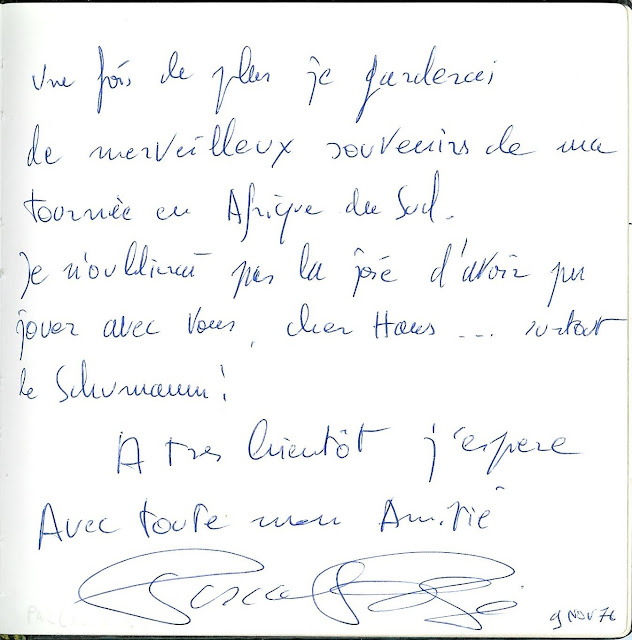 Une fois de plus je garderai
de merveilleux souvenirs de ma
tournée en Afrique du Sud.
Je n'oublierai pas la joie d'avoir pu
jouer avec vous, cher Hans ... surtout
le Schumann!
A tres bientôt j'espere
Avec toute mon Amitié
Pascal Rogé
9 NOV 76